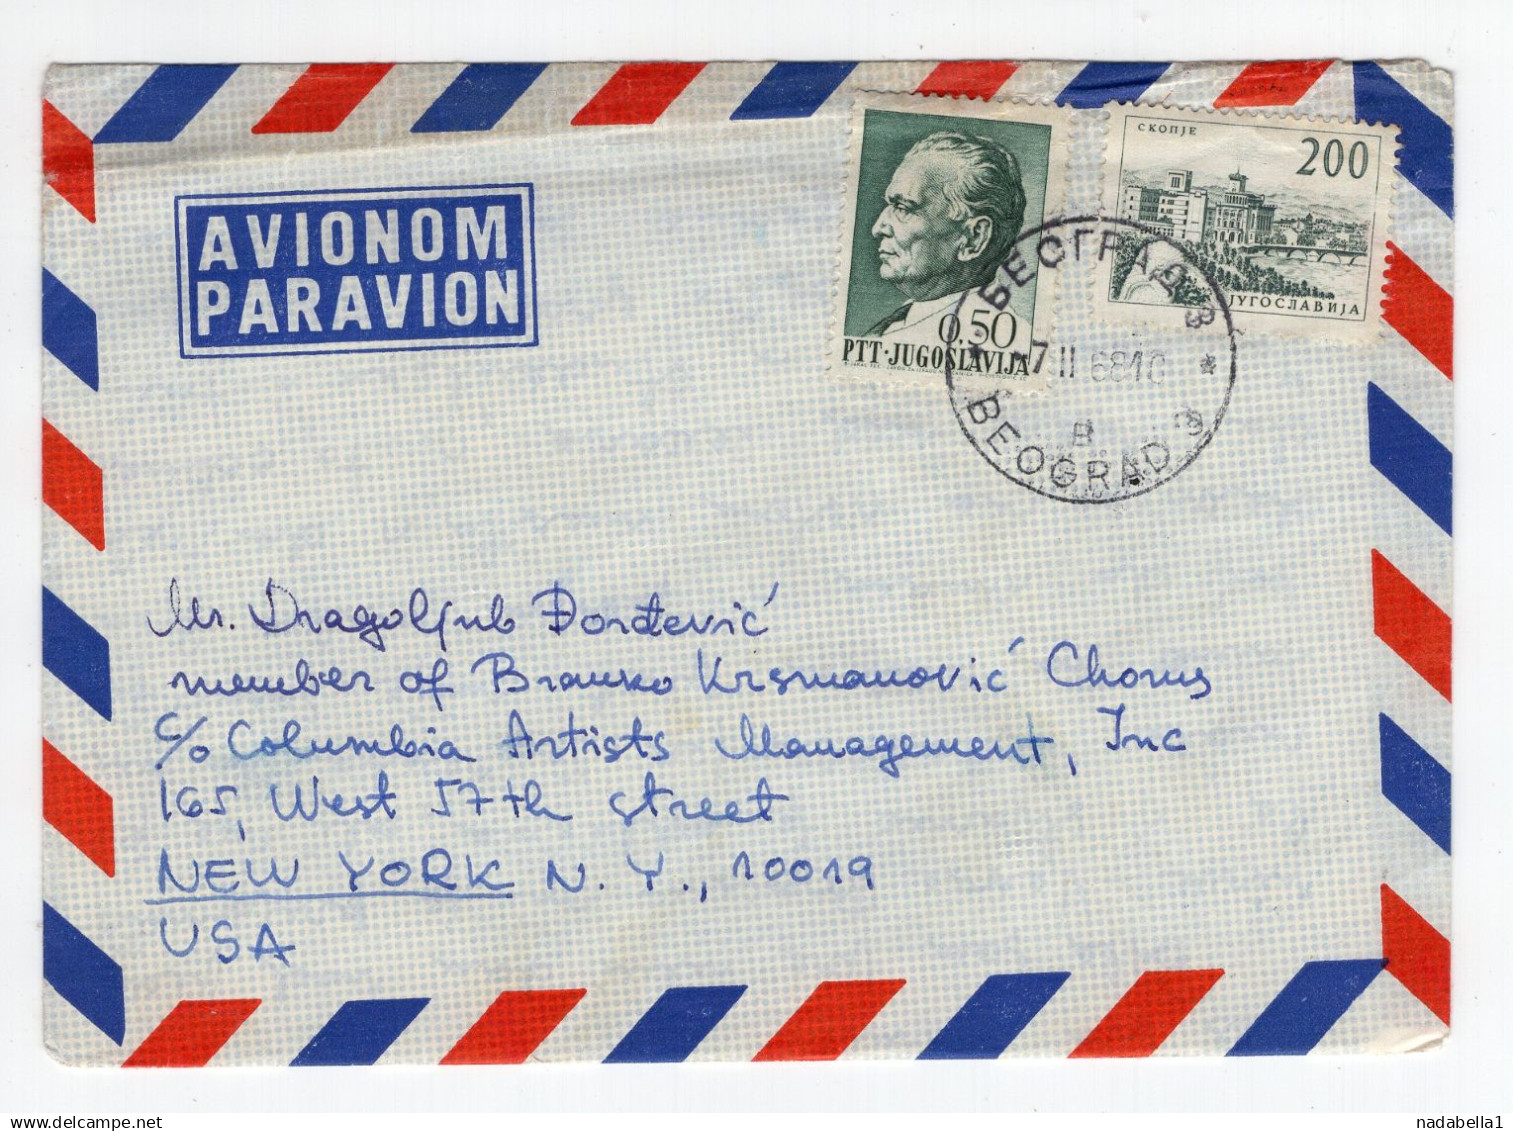 AVIONOM
PARAVION
0.50
PTT·JUGOSLAVIJA
СКОПЈЕ
200
ЈУГОСЛАВИЈА
БЕОГРАД 3
-7 II 68 10
B
BEOGRAD 3
Mr. Dragoljub Đorđević
member of Branko Krsmanović Chorus
c/o Columbia Artists Management, Inc
165, West 57th street
NEW YORK N. Y., 10019
USA
delcampe.net
nadabella1